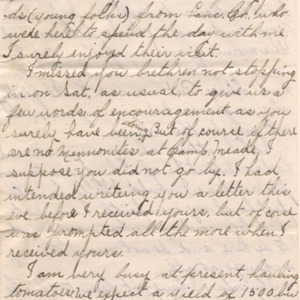 ds (young folks) from Lanc. Co. who
were here to spend the day with me.
I surely enjoyed their visit.
I missed you brethren not stopping
in on Sat. as usual to give us a
few words of encouragement as you
surely have being. But of course if there
are no Mennonites at Camp Meade, I
suppose you did not go by. I had
intended writing you a letter this
eve. before I received yours, but of corse
was prompted all the more when I
received yours.
I am very busy at present, hauling
tomatoes, we expect a yield of 1500 bu